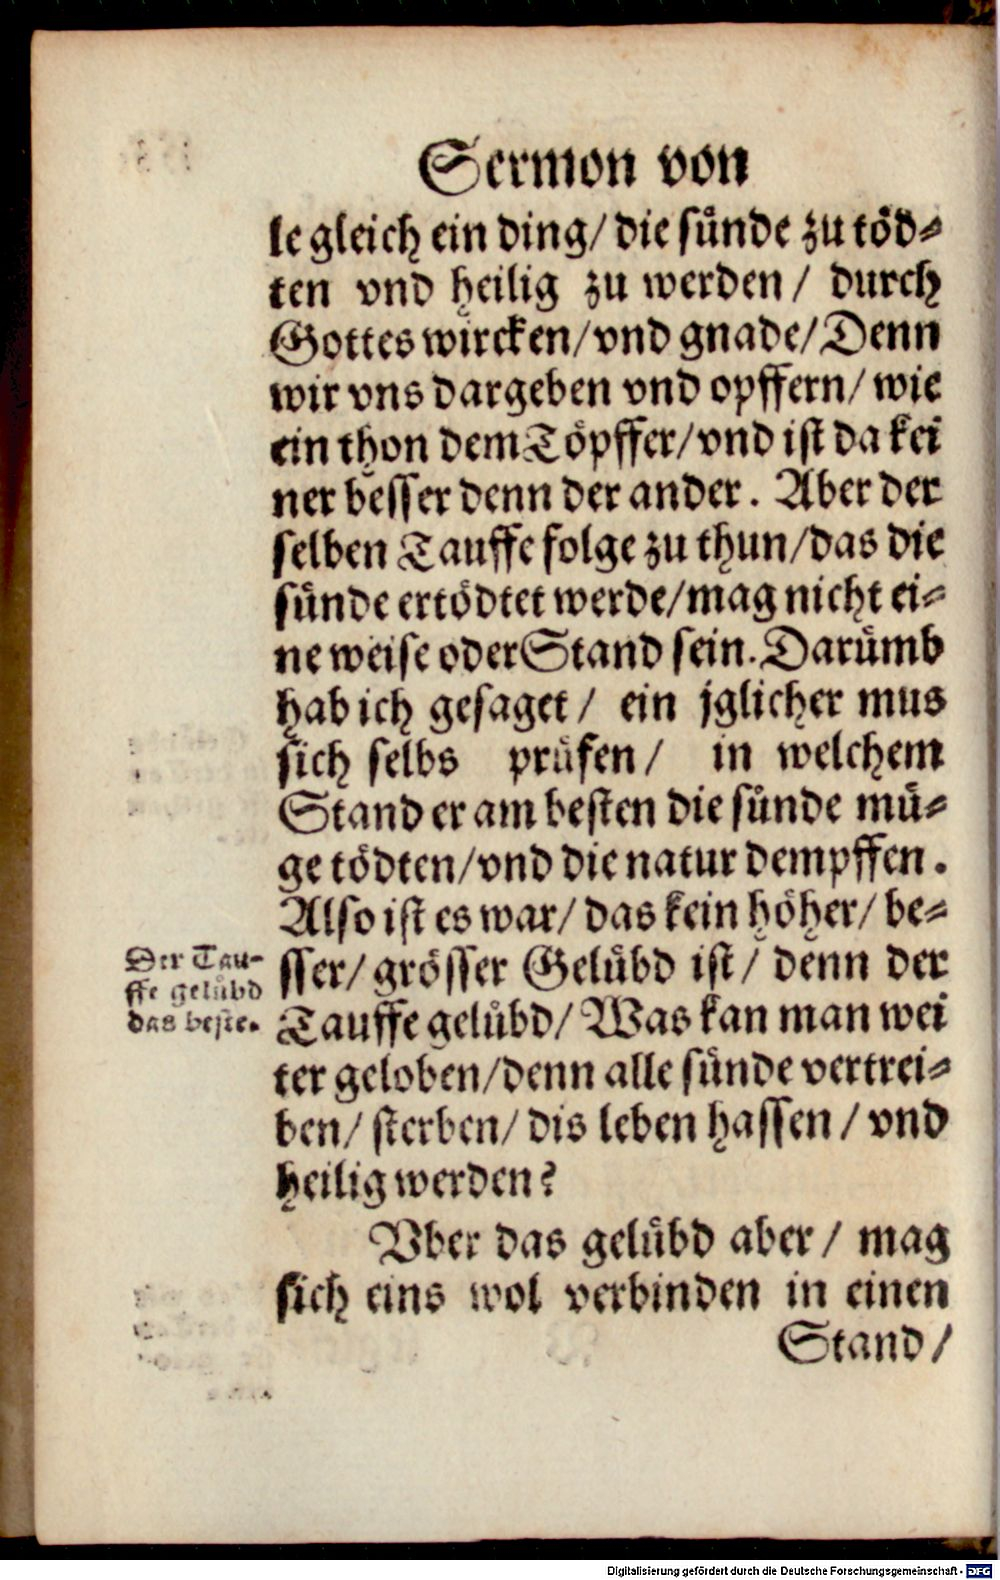 Sermon von
le gleich ein ding/ die sünde zu töd-
ten vnd heilig zu werden/ durch
Gottes wircken/ vnd gnade/ Denn
wir vns dargeben vnd opffern/ wie
ein thon dem Töpffer/ vnd ist da kei
ner besser denn der ander. Aber der
selben Tauffe folge zu thun/ das die
sünde ertödtet werde/ mag nicht ei-
ne weise oder Stand sein. Darümb
hab ich gesaget/ ein jglicher mus
sich selbs prüfen/ in welchem
Stand er am besten die sünde mü-
ge tödten/ vnd die natur dempffen.
Also ist es war/ das kein höher/ be-
sser/ grösser Gelübd ist/ denn der
Der Tau-
ffe gelübd
das beste.
Tauffe gelübd/ Was kan man wei
ter geloben/ denn alle sünde vertrei-
ben/ sterben/ dis leben hassen/ vnd
heilig werden?
Vber das gelübd aber/ mag
sich eins wol verbinden in einen
Stand/
Digitalisierung gefördert durch die Deutsche Forschungsgemeinschaft - DFG